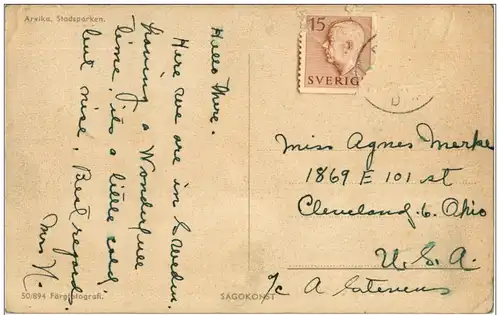 Arvika. Stadsparken.
Hello there.
Here we are in Sweden.
having a Wonderfull
time, it's a little cold
but nice. Best regards
Mrs N.
50/894 Färgfotografi.
SAGOKONST
15
SVERIGE
D
Miss Agnes Merke
1869 E 101 st
Cleveland. 6. Ohio
U. S. A.
c/o A